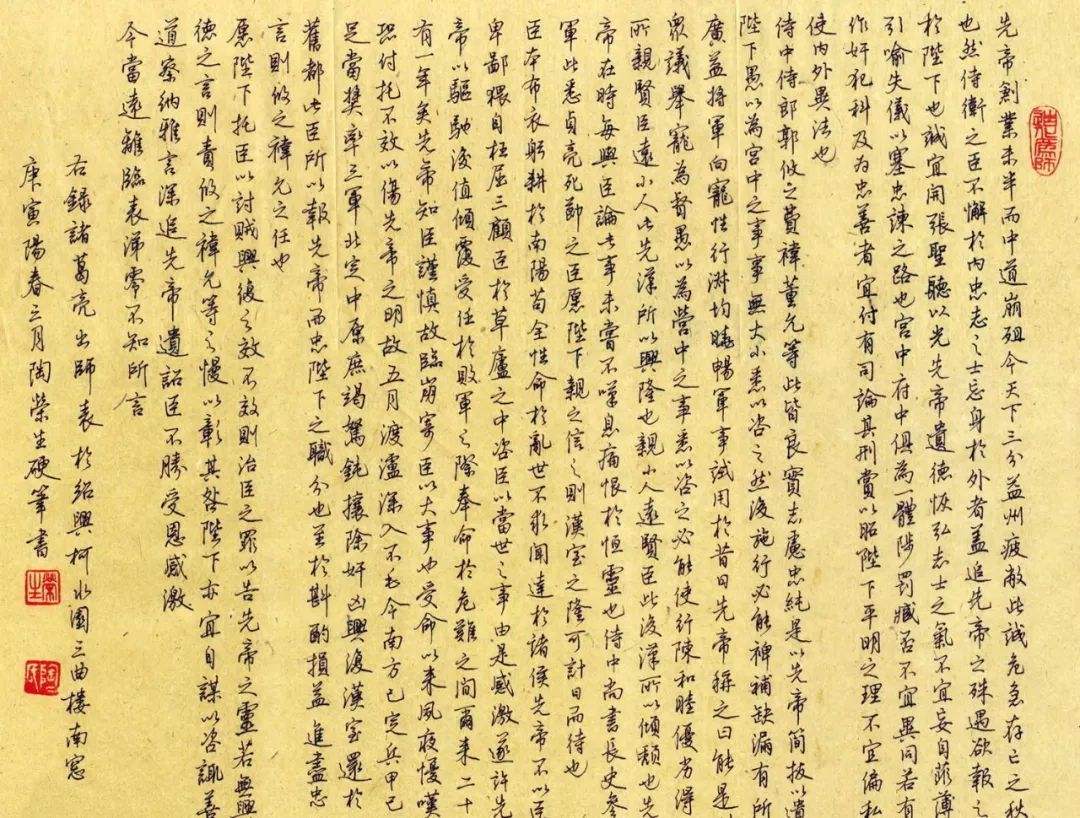 先帝創業未半而中道崩殂今天下三分益州疲敝此誠危急存亡之秋
也然侍衛之臣不懈於內忠志之士忘身於外者蓋追先帝之殊遇欲報之
於陛下也誠宜開張聖聽以光先帝遺德恢弘志士之氣不宜妄自菲薄
引喻失儀以塞忠諫之路也宮中府中俱為一體陟罰臧否不宜異同若有
作奸犯科及為忠善者宜付有司論其刑賞以昭陛下平明之理不宜偏私
使內外異法也
侍中侍郎郭攸之費禕董允等此皆良實志慮忠純是以先帝簡拔以遺
陛下愚以為宮中之事事無大小悉以咨之然後施行必能裨補缺漏有所
廣益將軍向寵性行淑均曉暢軍事試用於昔日先帝稱之曰能是
眾議舉寵為督愚以為營中之事悉以咨之必能使行陳和睦優劣得
所親賢臣遠小人此先漢所以興隆也親小人遠賢臣此後漢所以傾頹也先
帝在時每與臣論此事未嘗不嘆息痛恨於恒靈也侍中尚書長史參
軍此悉貞亮死節之臣愿陛下親之信之則漢室之隆可計日而待也
臣本布衣躬耕於南陽苟全性命於亂世不求聞達於諸侯先帝不以臣
卑鄙猥自枉屈三顧臣於草廬之中咨臣以當世之事由是感激遂許先
帝以驅馳後值傾覆受任於敗軍之際奉命於危難之間爾來二十
有一年矣先帝知臣謹慎故臨崩寄臣以大事也受命以來夙夜憂嘆
恐付托不效以傷先帝之明故五月渡瀘深入不毛今南方已定兵甲已
足當獎率三軍北定中原庶竭駑鈍攘除奸凶興復漢室還於
舊都此臣所以報先帝而忠陛下之職分也至於斟酌損益進盡忠
言則攸之禕允之任也
愿陛下托臣以討賊興復之效不效則治臣之罪以告先帝之靈若無興
德之言則責攸之禕允等之慢以彰其咎陛下亦宜自謀以咨諏善
道察納雅言深追先帝遺詔臣不勝受恩感激
今當遠離臨表涕零不知所言
右錄諸葛亮出師表於紹興柯水園三曲樓南窗
庚寅陽春三月陶榮生硬筆書
榮生
陶氏